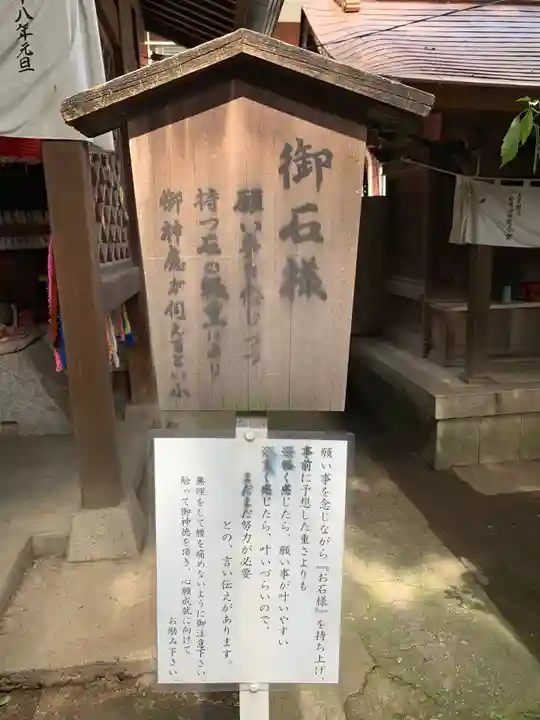 十八年元旦
御石様
願い事を念じつつ
持つ石の軽重により
御神慮が伺えるといふ
願い事を念じながら『お石様』を持ち上げ、
事前に予想した重さよりも
※軽く感じたら、願い事が叶いやすい
※重く感じたら、叶いづらいので、
まだまだ努力が必要
との、言い伝えがあります。
無理をして腰を痛めないように御注意下さい
触って御神徳を頂き、心願成就に向けて
お励み下さい